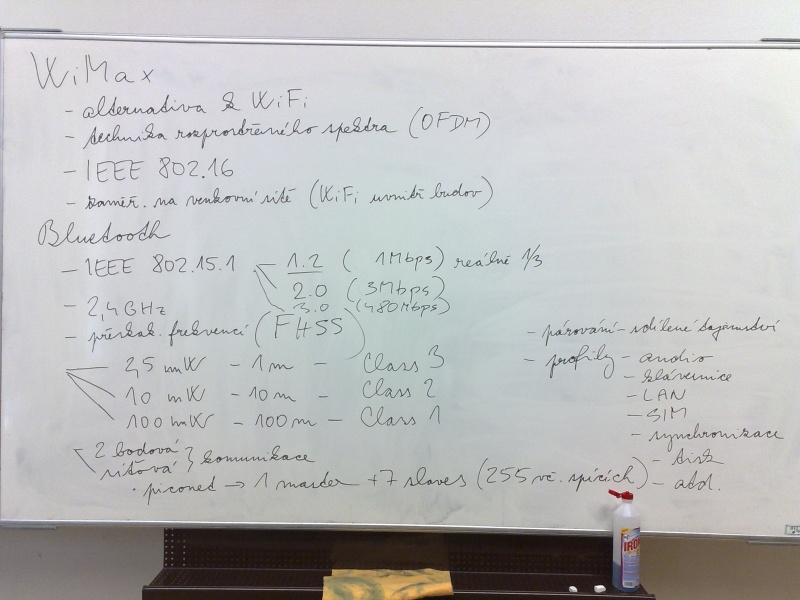 WiMax
- alternativa k WiFi
- technika rozprostřeného spektra (OFDM)
- IEEE 802.16
- zaměř. na venkovní sítě (WiFi uvnitř budov)
Bluetooth
- IEEE 802.15.1 - 1.2 ( 1Mbps) reálně 1/3
2.0 (3Mbps)
3.0 (480Mbps)
- 2,4GHz
- přeskak. frekvencí (FHSS)
2,5 mW - 1m - Class 3
10 mW - 10m - Class 2
100 mW - 100m - Class 1
2 bodová
síťová } komunikace
• piconet → 1 master +7 slaves (255 vč. spících)
- párování - sdílené tajemství
- profily - audio
- klávesnice
- LAN
- SIM
- synchronizace
- tisk
- atd.
IRON